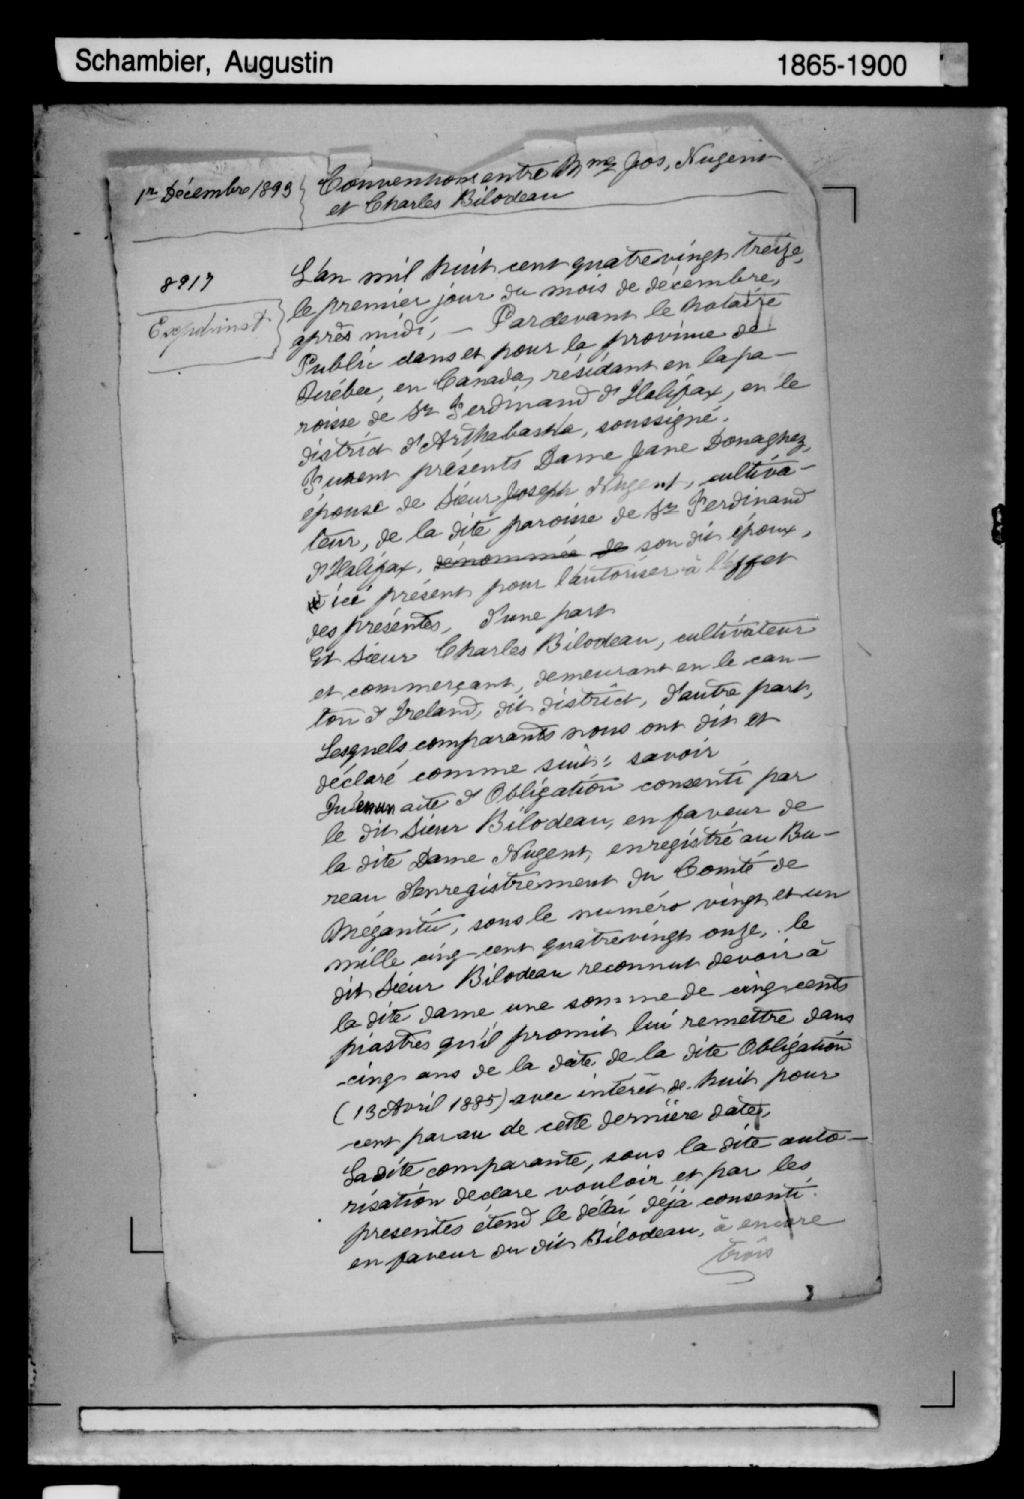 Schambier, Augustin
1865-1900
1er Décembre 1893
Convention entre Jos. Nugent
et Charles Bilodeau
8917
L'an mil huit cent quatrevingt treize,
le premier jour du mois de décembre,
après midi, — Pardevant le Notaire
Public dans et pour la province de
Québec, en Canada, résidant en la pa-
roisse de St Ferdinand d'Halifax, en le
district d'Arthabaska, soussigné.
Furent présents Dame Jane Donaghez,
épouse de Sieur Joseph Nugent, cultiva-
teur, de la dite paroisse de St Ferdinand
d'Halifax, dénommée de son dit époux,
ici présent pour l'autoriser à l'effet
des présentes, d'une part
Et Sieur Charles Bilodeau, cultivateur
et commerçant, demeurant en le can-
ton d'Ireland, dit district, d'autre part,
Lesquels comparants nous ont dit et
déclaré comme suit: savoir
Qu'en un acte d'Obligation consenti par
le dit Sieur Bilodeau, en faveur de
la dite Dame Nugent, enregistré au Bu-
reau d'enregistrement du Comté de
Mégantic, sous le numéro vingt et un
mille cinq-cent quatrevingt onze, le
dit Sieur Bilodeau reconnut devoir à
la dite dame une somme de cinq cents
piastres qu'il promit lui remettre dans
cinq ans de la date de la dite Obligation
(13 Avril 1885) avec intérêt de huit pour
cent par an de cette dernière date,
La dite comparante, sous la dite auto-
risation declare vouloir et par les
presentes étend le délai déjà consenti
en faveur du dit Bilodeau, à encore
trois